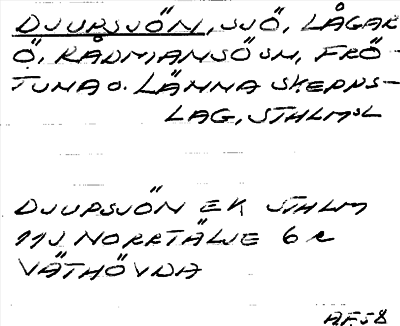 DJUPSJÖN, SJÖ, LÅGAR
Ö, RÅDMANSÖ SN, FRÖ-
TUNA O. LÄNNA SKEPPS-
LAG, STHLMSL
DJUPSJÖN EK STHLM
11J NORRTÄLJE 6 c
VÄTHÖVDA
A.F.58